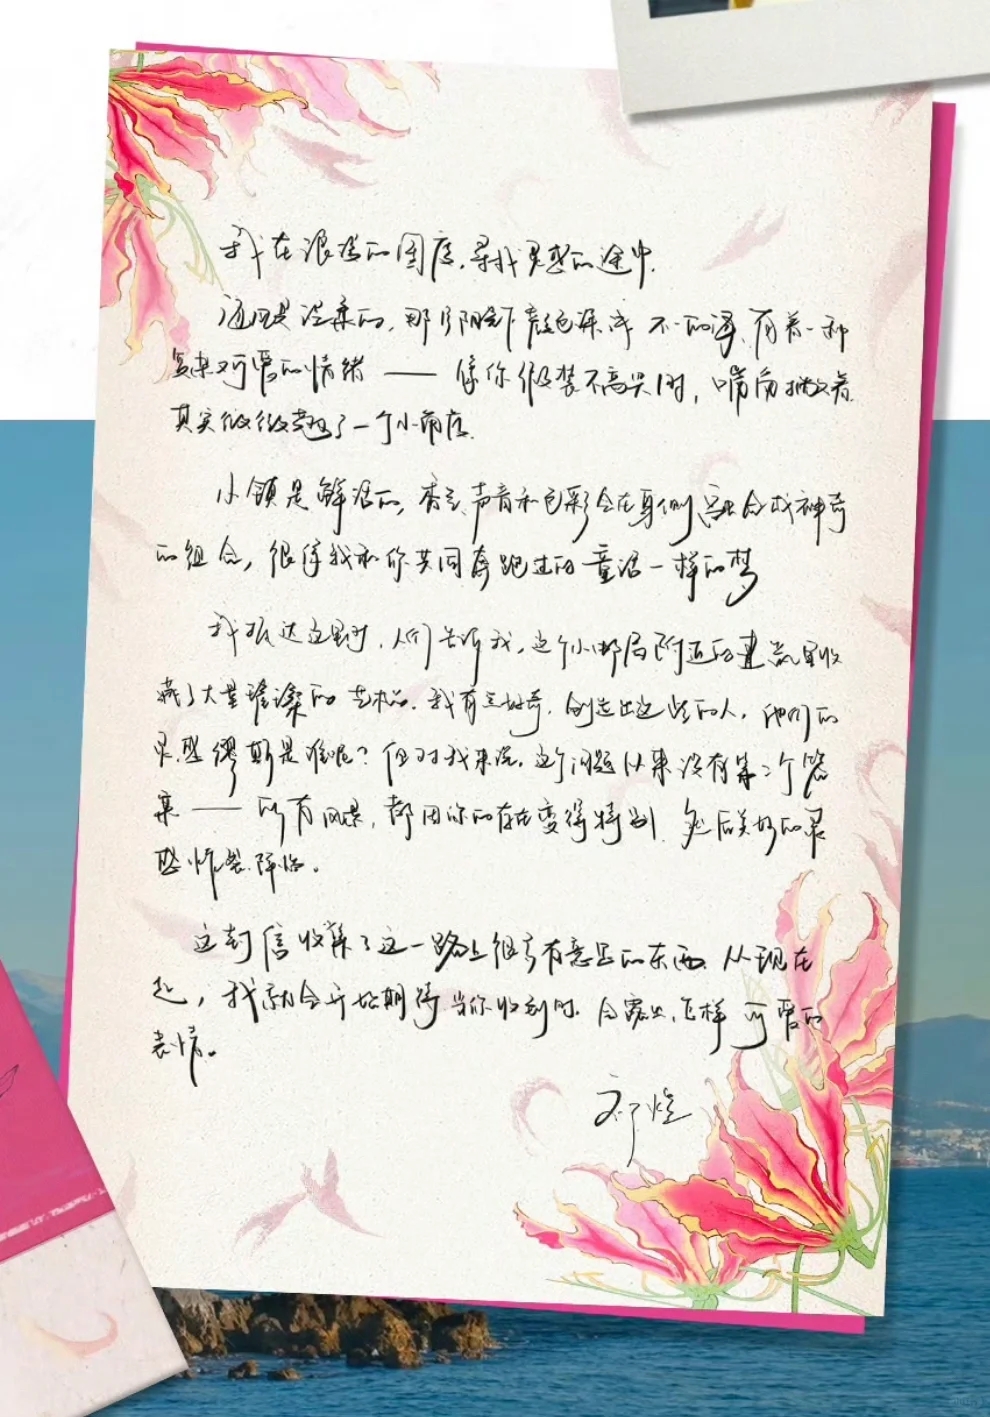 我在浪漫的国度,寻找灵感的途中.
海风是温柔的,那 阳 颜色 成不 的 ,有着一种
复杂又可爱的情绪——像你假装不高兴时,嘴角 着
其实微微翘了一个小角度.
小镇是鲜活的,香气,声音和色彩会在身侧融合成神奇
的组合,很像我和你共同奔跑过的童话一样的梦
我抵达这里时,人们告诉我,这个小邮局附近的建筑里收
藏了大量璀璨的艺术品.我有点好奇,创造出这些的人,他们的
灵感缪斯是谁呢?但对我来说,这个问题从来没有第二个答
案——所有风景,都因你的存在变得特别.然后美好的灵
感炸裂降临。
这封信收集了这一路上很多有意思的东西.从现在
起,我就会开始期待当你收到时.会露出怎样可爱的
表情。
祁煜